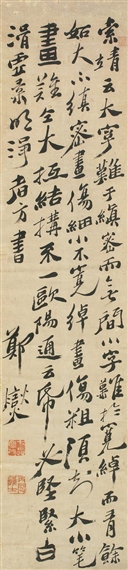 索靖云大字難于縝密而无間小字難於寬綽而有餘
如大不縝密畫傷細小不寬綽畫傷粗須知大小筆
畫難全大抵結搆不一歐陽通云帋必堅緊白
滑虛柔明淨者方書
鄭燮